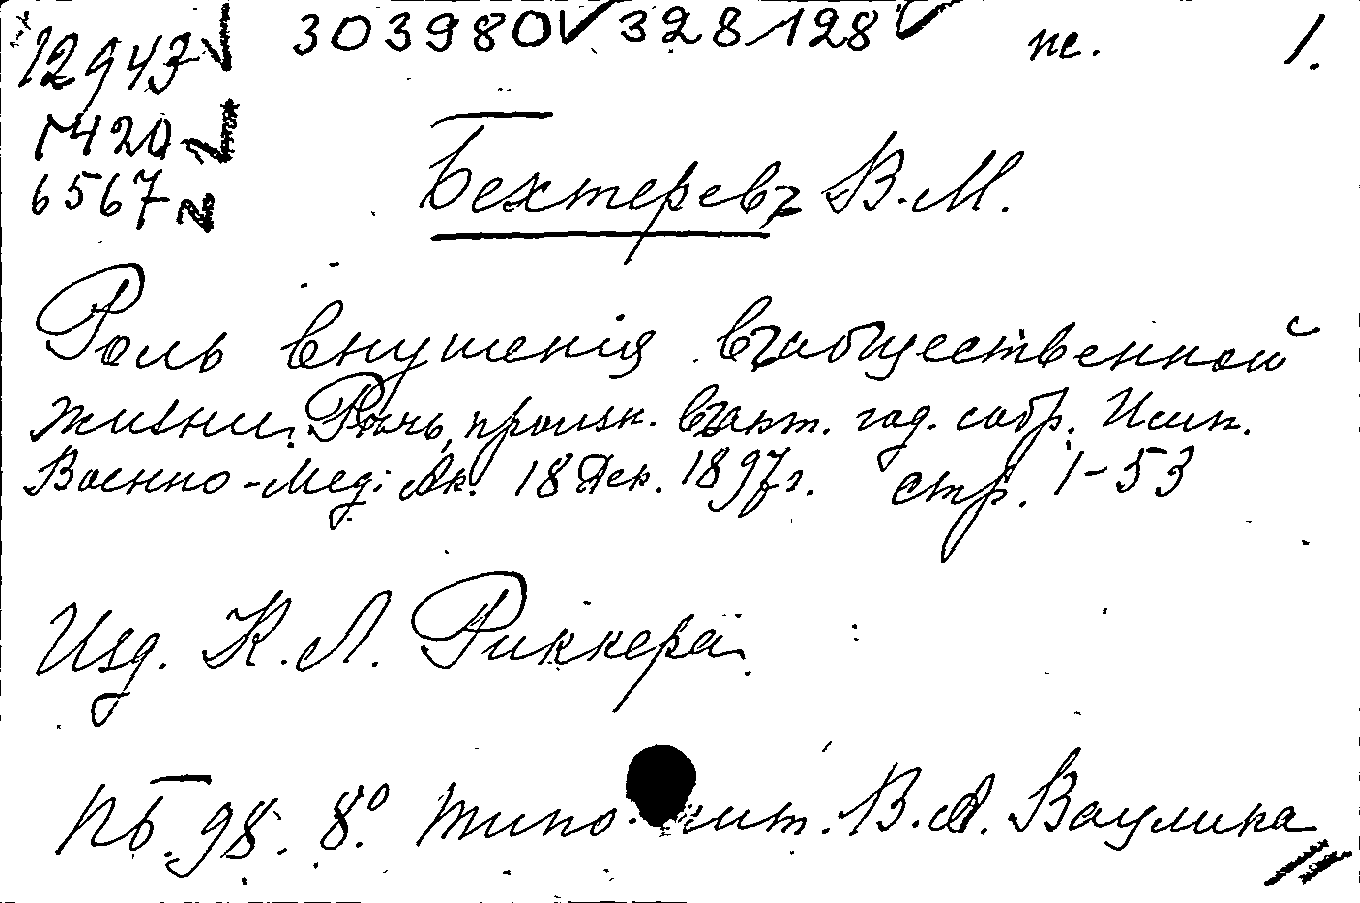 12943 303980 328128 т. 1.
7420
6567
Бехтеревъ В. М.
Роль внушенія въ общественной
жизни. Рѣчь, произн. въ акт. год. собр. Имп.
Военно-Мед. Ак. 18 Дек. 1897 г. стр. 1-53
Изд. К. Л. Риккера.
ПБ. 98. 8° Типо-лит. В. А. Ваулина